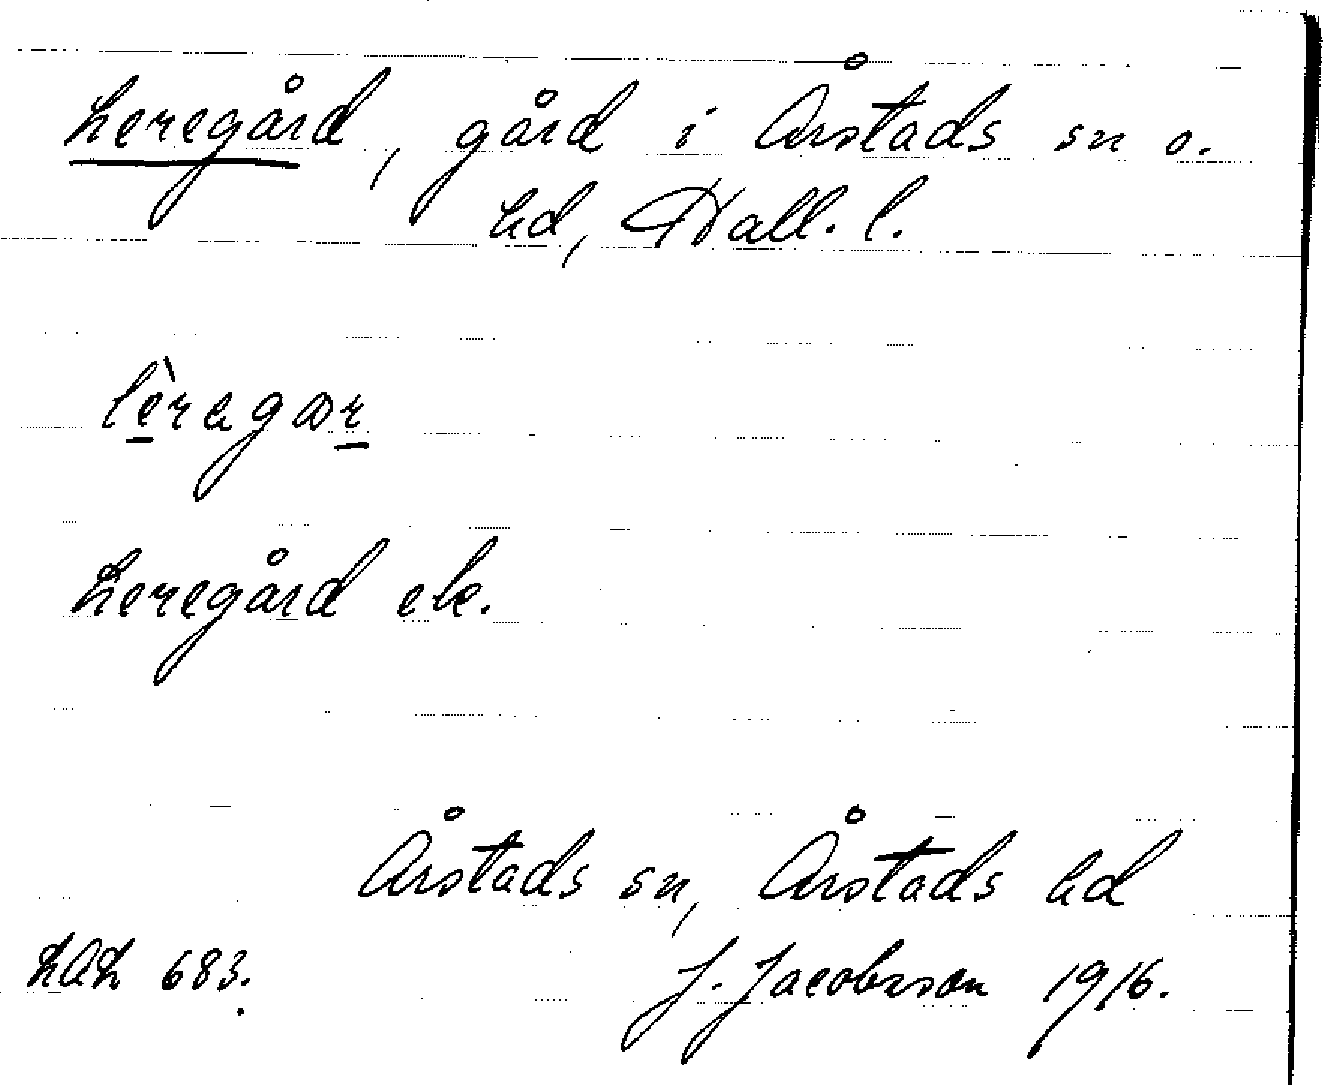 Leregård, gård i Årstads sn o.
hd, Hall. l.
lèregar
Leregård ek.
Årstads sn, Årstads hd
LAL 683.
J. Jacobsson 1916.